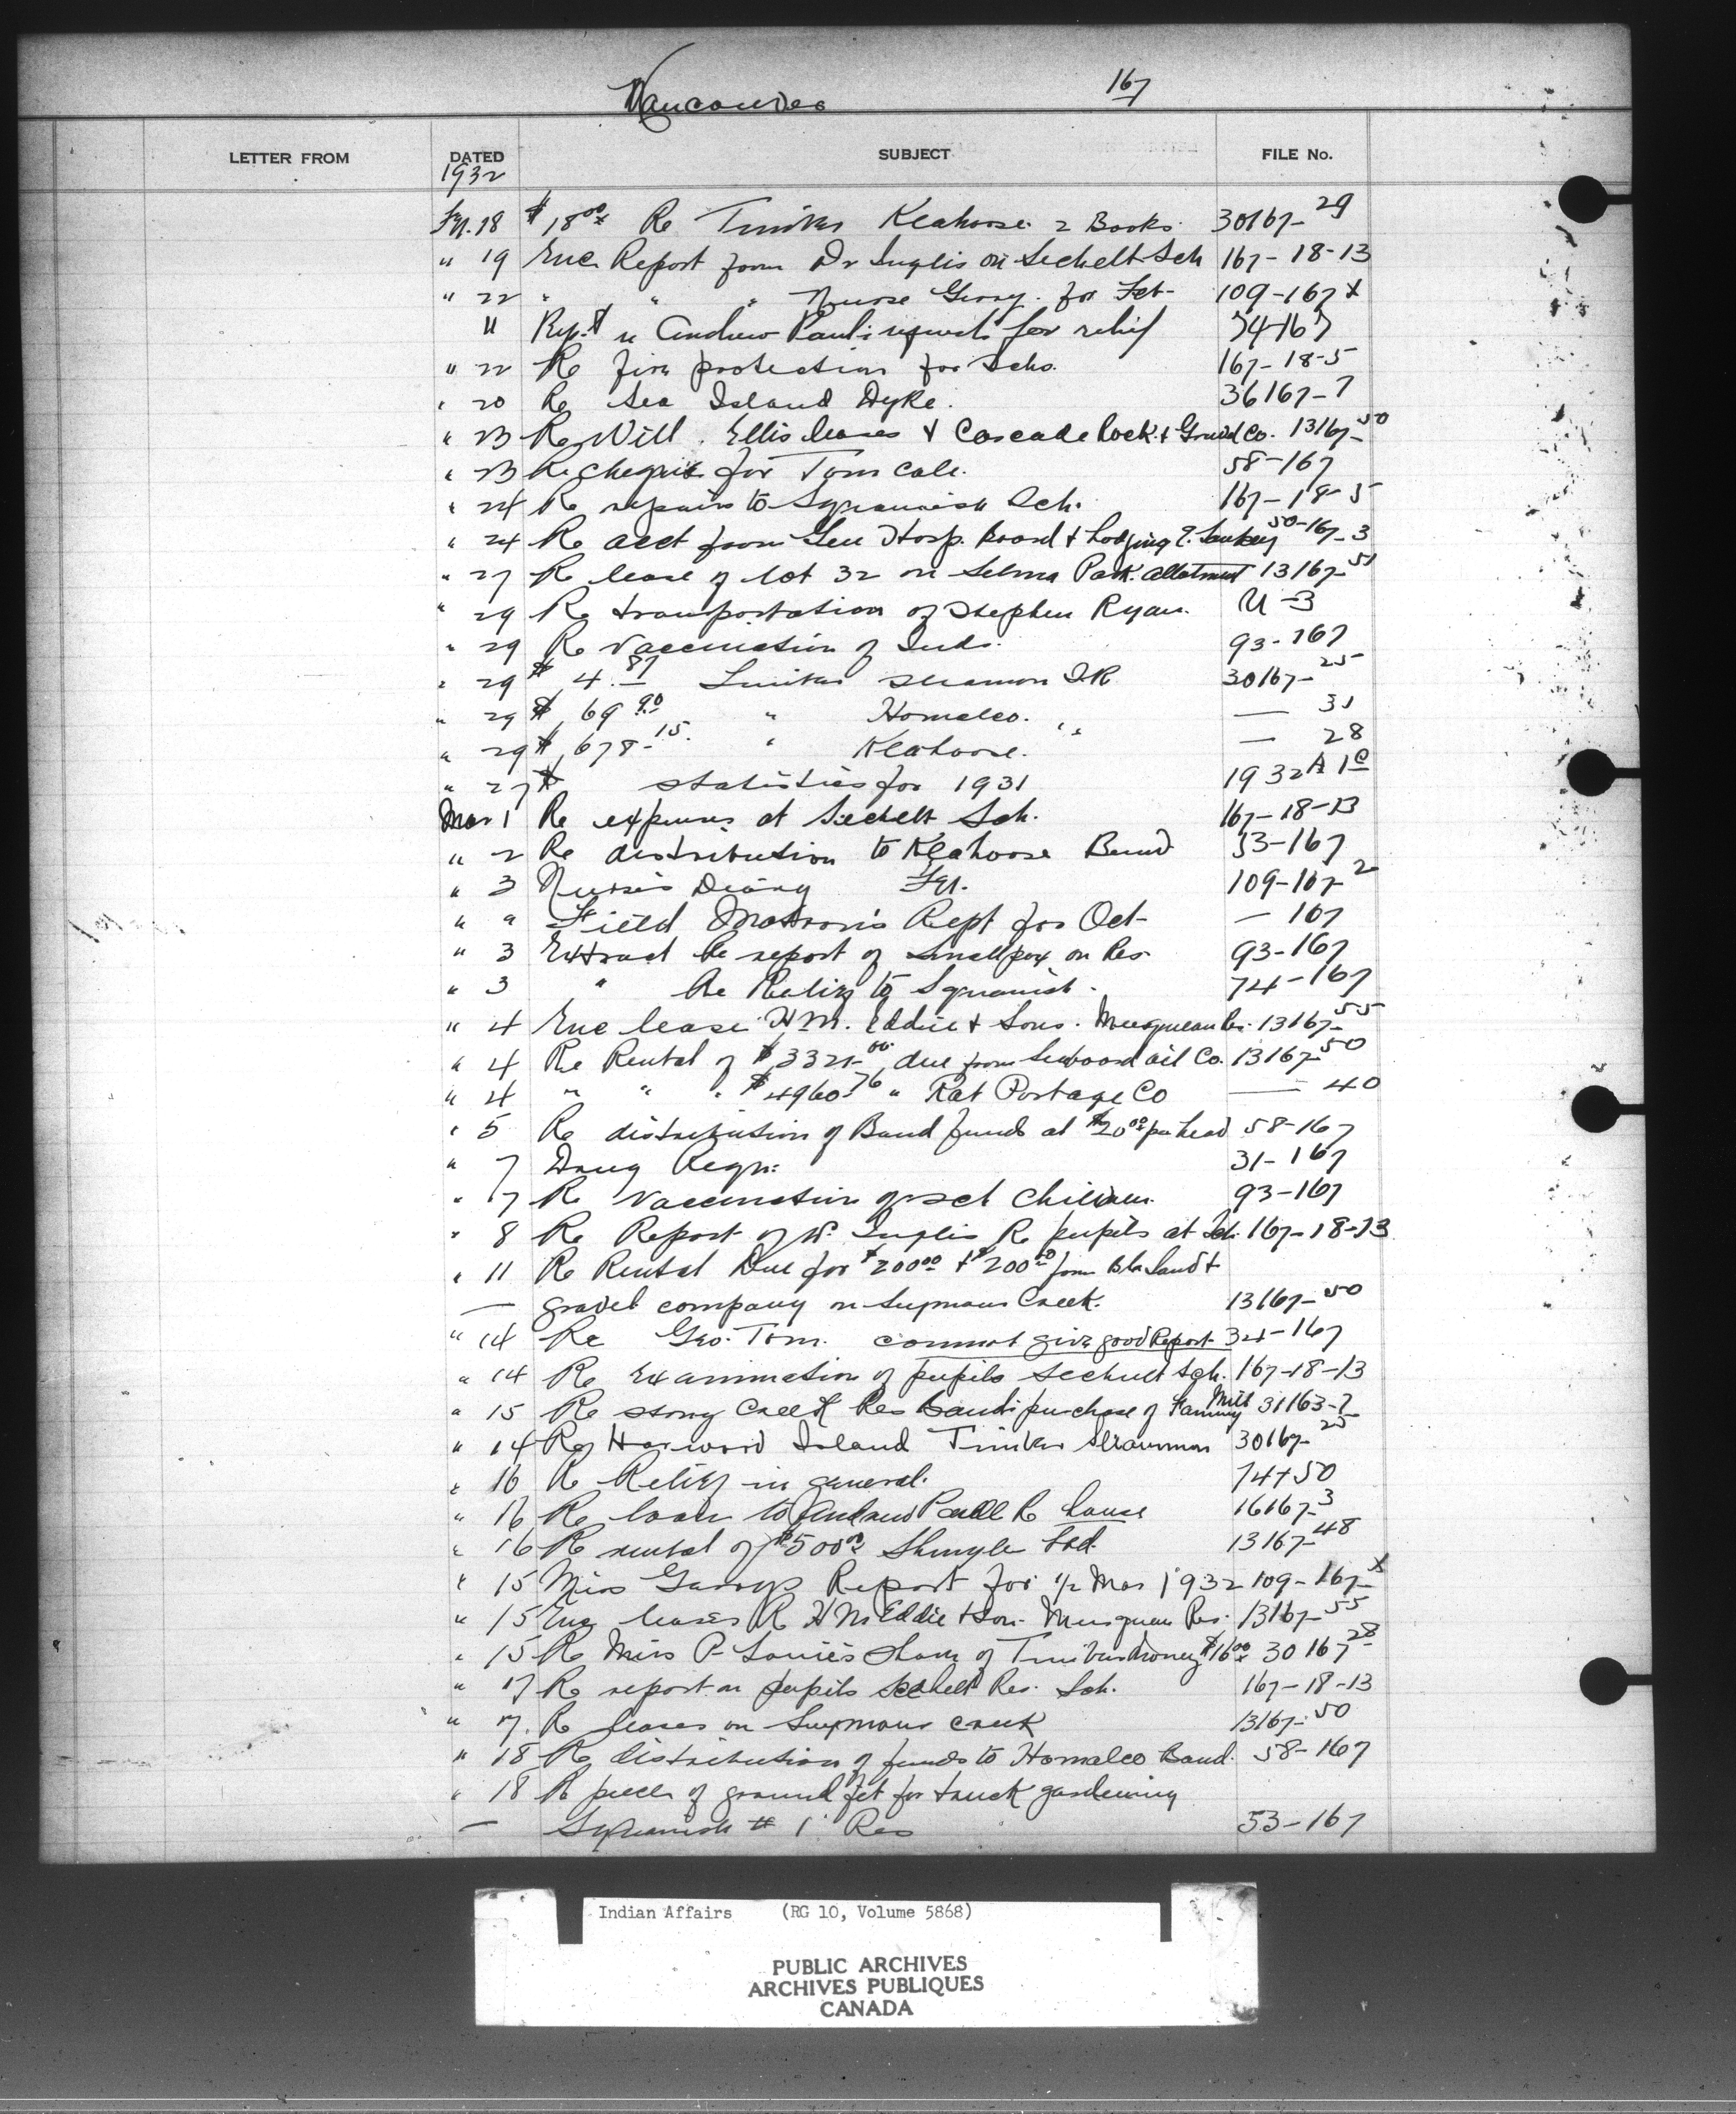 Vancouver 167
LETTER FROM DATED SUBJECT FILE No.
1932
Feb. 18 $18.00 Re Timber Klahoose 2 Books. 30167-29
" 19 Enc. Report from Dr Inglis on Sechelt Sch 167-18-13
" 22 " " " Nurse Geary. for Feb- 109-167 x
" Andrew Paul's request for relief 74-167
" 22 Re fire protection for Schs. 167-18-5
" 20 Re Sea Island Dyke. 36167-7
" 23 Re Will. Ellis leases & Cascade Rock & Gravel Co. 13167-50
" 23 Re cheque for Tom Cole. 58-167
" 24 Re repairs to Squamish Sch. 167-18-5
" 24 Re acct from Gen Hosp. board & lodging E. 50-167-3
" 27 Re lease of lot 32 on Selma Park. allotment 13167-51
" 29 Re transportation of Stephen Ryan. U-3
" 29 Re vaccination of Inds. 93-167
" 29 $4.87 Timber Sliamon IR 30167-25
" 29 $69.90 " Homalco. " 31
" 29 $678.15 " Klahoose. — 28
" 27 $ statistics for 1931 1932 A 1c
Mar 1 Re expenses at Sechelt Sch. 167-18-13
" 2 Re distribution to Klahoose Band 53-167
" 3 Nurse's Diary Feb. 109-167-2
" " Field Matron's Rept for Oct- — 167
" 3 Extract Re report of Smallpox on Res. 93-167
" 3 " Re Relief to Squamish. 74-167
" 4 Enc lease H.M. Eddie & Sons. Musqueam Res. 13167-55
" 4 Re Rental of due from Seaboard oil Co. 13167-50
" 4 " " " $4960.76 " Rat Portage Co — 40
" 5 Re distribution of Band funds at $20.00 per head 58-167
" 7 Drug Reqn: 31-167
" 7 Re vaccination of sch children. 93-167
" 8 Re Report of Dr. Inglis Re pupils at Sch. 167-18-13
" 11 Re Rental Due for $200.00 + $200.00 from Sand &
— gravel company on Seymour Creek. 13167-50
" 14 Re Geo. Tom. cannot give good Report 34-167
" 14 Re Examination of pupils Sechelt Sch. 167-18-13
" 15 Re Stony Creek Res Band purchase of Fanning Mill 31163-7
" 14 Re Harwood Island Timber Sliammon 30167-25
" 16 Re Relief in general. 74+50
" 16 Re loan to Andrew Paull Re house 16167-3
" 16 Re rental of $500.00 Shingle Ltd. 13167-48
" 15 Miss Geary's Report for 1/2 Mar 1932 109-167-x
" 15 Enc leases Re H M Eddie & Son. Musqueam Res. 13167-55
" 15 Re Miss P. Louie's share of Timber money $16.00 30167-28
" 17 Re report on pupils Sechelt Res. Sch. 167-18-13
" 17. Re leases on Seymour creek 13167-50
" 18 Re distribution of funds to Homalco Band. 58-167
" 18 Re piece of ground for truck gardening
— Squamish # 1 Res 53-167
Indian Affairs (RG 10, Volume 5868)
PUBLIC ARCHIVES
ARCHIVES PUBLIQUES
CANADA